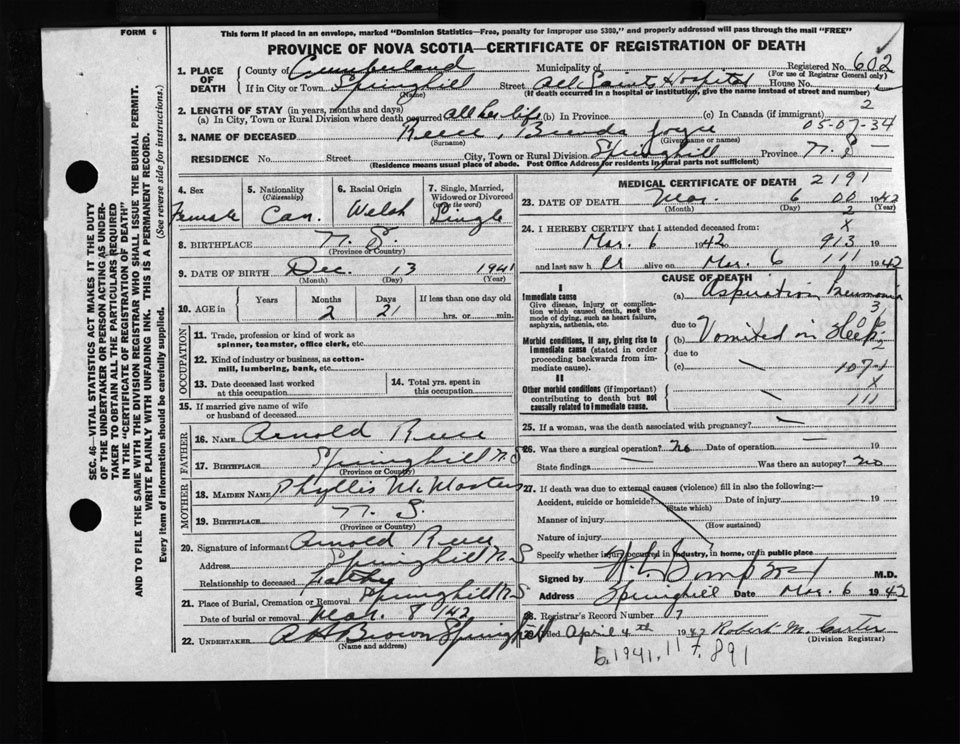 FORM 6
This form if placed in an envelope, marked "Dominion Statistics—Free, penalty for improper use $300," and properly addressed will pass through the mail "FREE"
PROVINCE OF NOVA SCOTIA—CERTIFICATE OF REGISTRATION OF DEATH
SEC. 46—VITAL STATISTICS ACT MAKES IT THE DUTY
OF THE UNDERTAKER OR PERSON ACTING AS UNDER-
TAKER TO OBTAIN ALL THE PARTICULARS REQUIRED
IN THE "CERTIFICATE OF REGISTRATION OF DEATH"
AND TO FILE THE SAME WITH THE DIVISION REGISTRAR WHO SHALL ISSUE THE BURIAL PERMIT.
WRITE PLAINLY WITH UNFADING INK. THIS IS A PERMANENT RECORD.
Every item of information should be carefully supplied. (See reverse side for instructions.)
1. PLACE OF DEATH
County of Cumberland Municipality of Registered No. 602
(For use of Registrar General only)
If in City or Town Springhill Street All Saints Hospital House No.
(Name) (If death occurred in a hospital or institution, give the name instead of street and number)
2. LENGTH OF STAY (in years, months and days) 2
(a) In City, Town or Rural Division where death occurred all her life (b) In Province (c) In Canada (if immigrant)
3. NAME OF DECEASED Reece, Brenda Joyce 05-07-34
(Surname) (Given name or names) 8 —
RESIDENCE No. Street City, Town or Rural Division Springhill Province N.S.
(Residence means usual place of abode. Post Office Address for residents in rural parts not sufficient)
4. Sex
Female
5. Nationality
(Citizenship)
Can.
6. Racial Origin
Welsh
7. Single, Married,
Widowed or Divorced
(use the word)
Single
8. BIRTHPLACE N. S.
(Province or Country)
9. DATE OF BIRTH Dec. 13 1941
(Month) (Day) (Year)
10. AGE in
Years Months Days If less than one day old
2 21 hrs. or min.
OCCUPATION
11. Trade, profession or kind of work as
spinner, teamster, office clerk, etc.
12. Kind of industry or business, as cotton-
mill, lumbering, bank, etc.
13. Date deceased last worked
at this occupation
14. Total yrs. spent in
this occupation
15. If married give name of wife
or husband of deceased
FATHER
16. NAME Arnold Reece
17. BIRTHPLACE Springhill N.S
(Province or Country)
MOTHER
18. MAIDEN NAME Phyllis McMasters
19. BIRTHPLACE N. S.
(Province or Country)
20. Signature of informant Arnold Reece
Address Springhill N.S
Relationship to deceased Father
21. Place of Burial, Cremation or Removal Springhill N S
Date of burial or removal Mar. 8 1942
22. UNDERTAKER Brown Springhill
(Name and address)
MEDICAL CERTIFICATE OF DEATH 2191
23. DATE OF DEATH Mar. 6 00 1942
(Month) (Day) 2 (Year)
24. I HEREBY CERTIFY that I attended deceased from: X
Mar. 6 1942 to 913 19
and last saw h er alive on Mar. 6 111 1942
CAUSE OF DEATH
I
Immediate cause
Give disease, injury or complica-
tion which caused death, not the
mode of dying, such as heart failure,
asphyxia, asthenia, etc.
(a) Aspiration Pneumonia
3
due to
Morbid conditions, if any, giving rise to
immediate cause (stated in order
proceeding backwards from im-
mediate cause).
(b) Vomited in sleep
due to
(c) 107-1
X
II
Other morbid conditions (if important)
contributing to death but not
causally related to immediate cause.
111
25. If a woman, was the death associated with pregnancy? —
26. Was there a surgical operation? no Date of operation — 19
State findings — Was there an autopsy? no
27. If death was due to external causes (violence) fill in also the following:—
Accident, suicide or homicide? Date of injury 19
(State which)
Manner of injury
(How sustained)
Nature of injury
Specify whether injury occurred in industry, in home, or in public place
Signed by M.D.
Address Springhill Date Mar. 6 1942
28. Registrar's Record Number 7
29. Filed April 4th 1942 Robert M. Carter
(Division Registrar)
b.1941.117.891